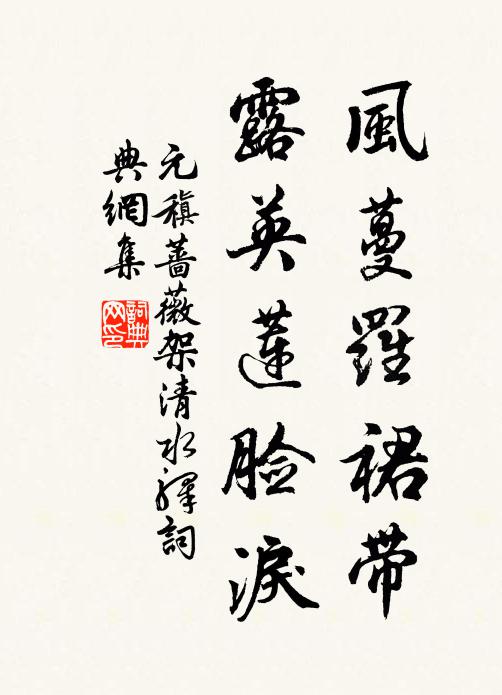 風蔓羅裙帶
露英蓮臉淚
元稹薔薇架清水驛詞
典網集
詞典網印